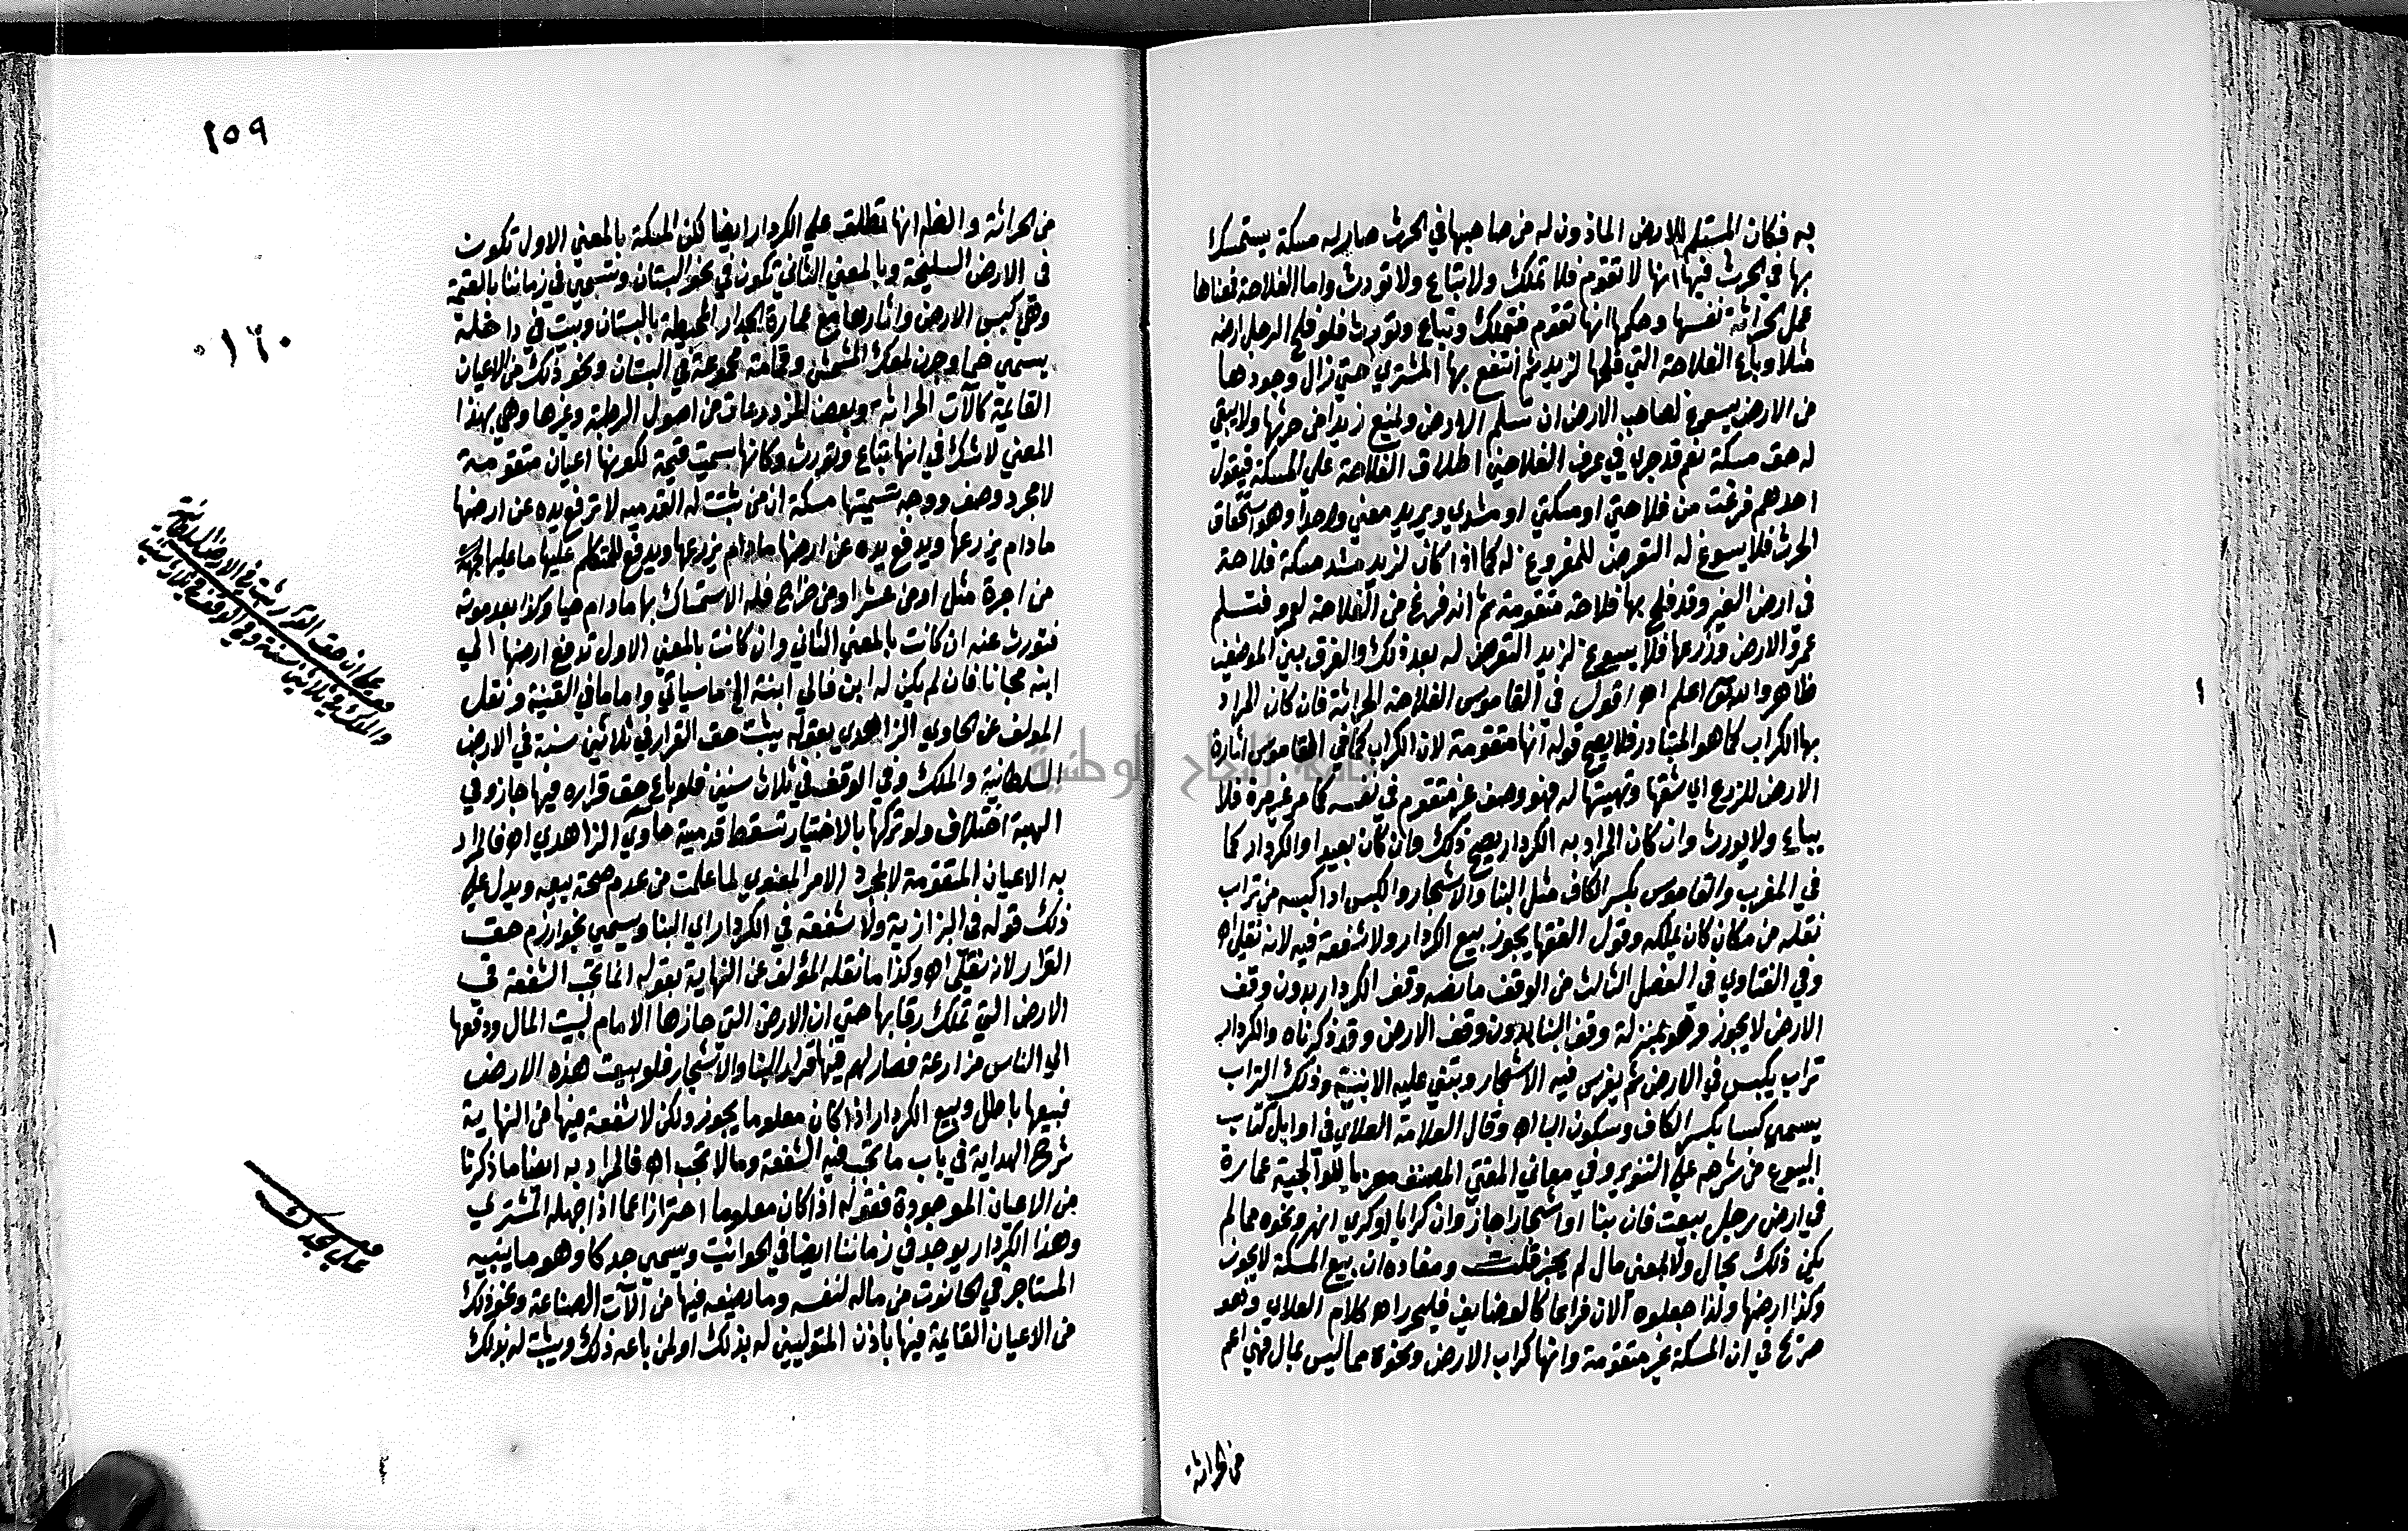 به فكان المستلم للارض الماذون له من صاحبها في الحرث صار له مسكة يستمسك
بها في الحرث فيها انها لا تقوم فلا تملك ولا تباع ولا تورث واما الفلاحة فمعناها
عمل الحراثة نفسها وحكمها انها تقوم فتملك وتباع وتورث فلو فلح الرجل ارضه
مثلا وباع الفلاحة التي فلحها لزيد ثم انتفع بها المشتري حتي زال وجودها
من الارض يسوغ لصاحب الارض ان تسلم الارض ويمنع زيدا من حرثها ولا يبقي
له حق مسكة نعم قد جري في عرف الفلاحين اطلاق الفلاحة علي المسكة فيقول
احدهم فرغت من فلاحتي او مسكتي او مشدي ويريد معني واحدا وهو استحقاق
الحرث فلا يسوغ له التعرض للمفروغ له كما اذا كان لزيد مشد مسكة فلاحة
في ارض الغير وقد فلح بها فلاحة متقومة ثم انه فرغ من الفلاحة لعمرو فتسلم
عمرو الارض وزرعها فلا يسوغ لزيد التعرض له بعد ذلك والفرق بين الموضعين
ظاهر والله اعلم اه اقول في القاموس الفلاحة الحراثة فان كان المراد
بها الكراب كما هو المتبادر فلا يصح قوله انها متقومة لان الكراب كما في القاموس اثارة
الارض للزرع اي شقها وتهيئتها له فهو وصف غير متقوم في نفسه كما مر غير مرة فلا
يباع ولا يورث وان كان المراد به الكردار يصح ذلك وان كان بعيدا والكردار كما
في المغرب والقاموس بكسر الكاف مثل البنا والاشجار والكبس اذا كبسه من تراب
نقله من مكان كان يملكه وقول الفقها يجوز بيع الكردار ولا شفعة فيه لانه نقلي اه
وفي الفتاوي في الفصل الثالث من الوقف ما نصه وقف الكردار بدون وقف
الارض لا يجوز وهو بمنزلة وقف البنا بدون وقف الارض وقد ذكرناه والكردار
تراب يكبس في الارض ثم يغرس فيه الاشجار وتبني عليه الابنية وذلك التراب
يسمي كبسا بكسر الكاف وسكون البا اه وقال العلامة العلاي في اوايل كتاب
البيوع من شرحه علي التنوير وفي معاني المفتي المصنف معزيا للولوالجية عمارة
في ارض رجل بيعت فان بنا او اشجارا جاز وان كرابا او كري انهر ونحوه مما لم
يكن ذلك بمال ولا بمعني مال لم يجز قلت ومفاده ان بيع المسكة لا يجوز
وكذا ارضها ولذا جعلوه الان فراغا كالوضايف فليحرر اه كلام العلاي وهو
صريح في ان المسكة غير متقومة وانها كراب الارض ونحوه مما ليس بمال فهي اعم
من الحراثة
٢٥٩
١٦٠
من الحراثة والظا انها تطلق علي الكردار ايضا لكن المسكة بالمعني الاول تكون
في الارض السليخة وبالمعني الثاني تكون في نحو البستان وتسمي في زماننا بالقيمة
وهي كبس الارض واثارها مع عمارة الجدار المحيطة بالبستان وبيت في داخله
يسمي وجرن لمعك المشمش وقمامة مجموعة في البستان ونحو ذلك من الاعيان
القايمة كآلات الحراثة وبعض المزدرعات من اصول الرطبة وغيرها وهي بهذا
المعني لا شك في انها تباع وتورث وكانها سميت قيمة لكونها اعيان متقومة
لا مجرد وصف ووجه تسميتها مسكة ان من ثبتت له القدمية لا ترفع يده عن ارضها
مادام يزرعها ويدفع يده عن ارضها مادام يزرعها ويدفع للمتكلم عليها ما عليها لجهة
من اجرة مثل او من عشر او من خراج فله الاستمساك بها مادام حيا وكذا بعد موته
فتورث عنه ان كانت بالمعني الثاني وان كانت بالمعني الاول تدفع ارضها الي
ابنه مجانا فان لم يكن له ابن فالي ابنته الخ ما سياتي واما ما في القنية ونقل
المولف عن الحاوي الزاهدي بقوله يثبت حق القرار في ثلاثين سنة في الارض
السلطانية والملك وفي الوقف في ثلاث سنين فلو باع حق قراره فيها جاز وفي
الهبة اختلاف ولو تركها بالاختيار تسقط قدميته حاوي الزاهدي اه فالمراد
به الاعيان المتقومة لا مجرد الامر المعنوي لما علمت من عدم صحة بيعه ويدل علي
ذلك قوله في البزازية ولا شفعة في الكردار اي البنا ويسمي بخوارزم حق
القرار لانه نقلي اه وكذا ما نقله المؤلف عن النهاية بقوله انما تجب الشفعة في
الارض التي تملك رقابها حتي ان الارض التي حازها الامام لبيت المال ودفعها
الي الناس مزارعة فصار لهم فيها قرار البنا والاشجار فلو بيعت هذه الارض
فبيعها باطل وبيع الكردار اذا كان معلوما يجوز ولكن لا شفعة فيها من النهاية
شرح الهداية في باب ما تجب فيه الشفعة وما لا تجب اه فالمراد به ايضا ما ذكرنا
من الاعيان الموجودة فقوله اذا كان معلوما احترازا عما اذا جهله المشتري
وهذا الكردار يوجد في زماننا ايضا في الحوانيت ويسمي جدكا وهو ما يبنيه
المستاجر في الحانوت من ماله لنفسه وما يضعه فيها من الآت الصناعة ونحو ذلك
من الاعيان القايمة فيها باذن المتوليين له بذلك او لمن باعه ذلك ويثبت له بذلك
مطلب ان حق القرار يثبت في الارض السلطانية
والملك في ثلاثين سنة وفي الوقف في ثلاث سنين
مطلب الجدك
جامعة النجاح الوطنية